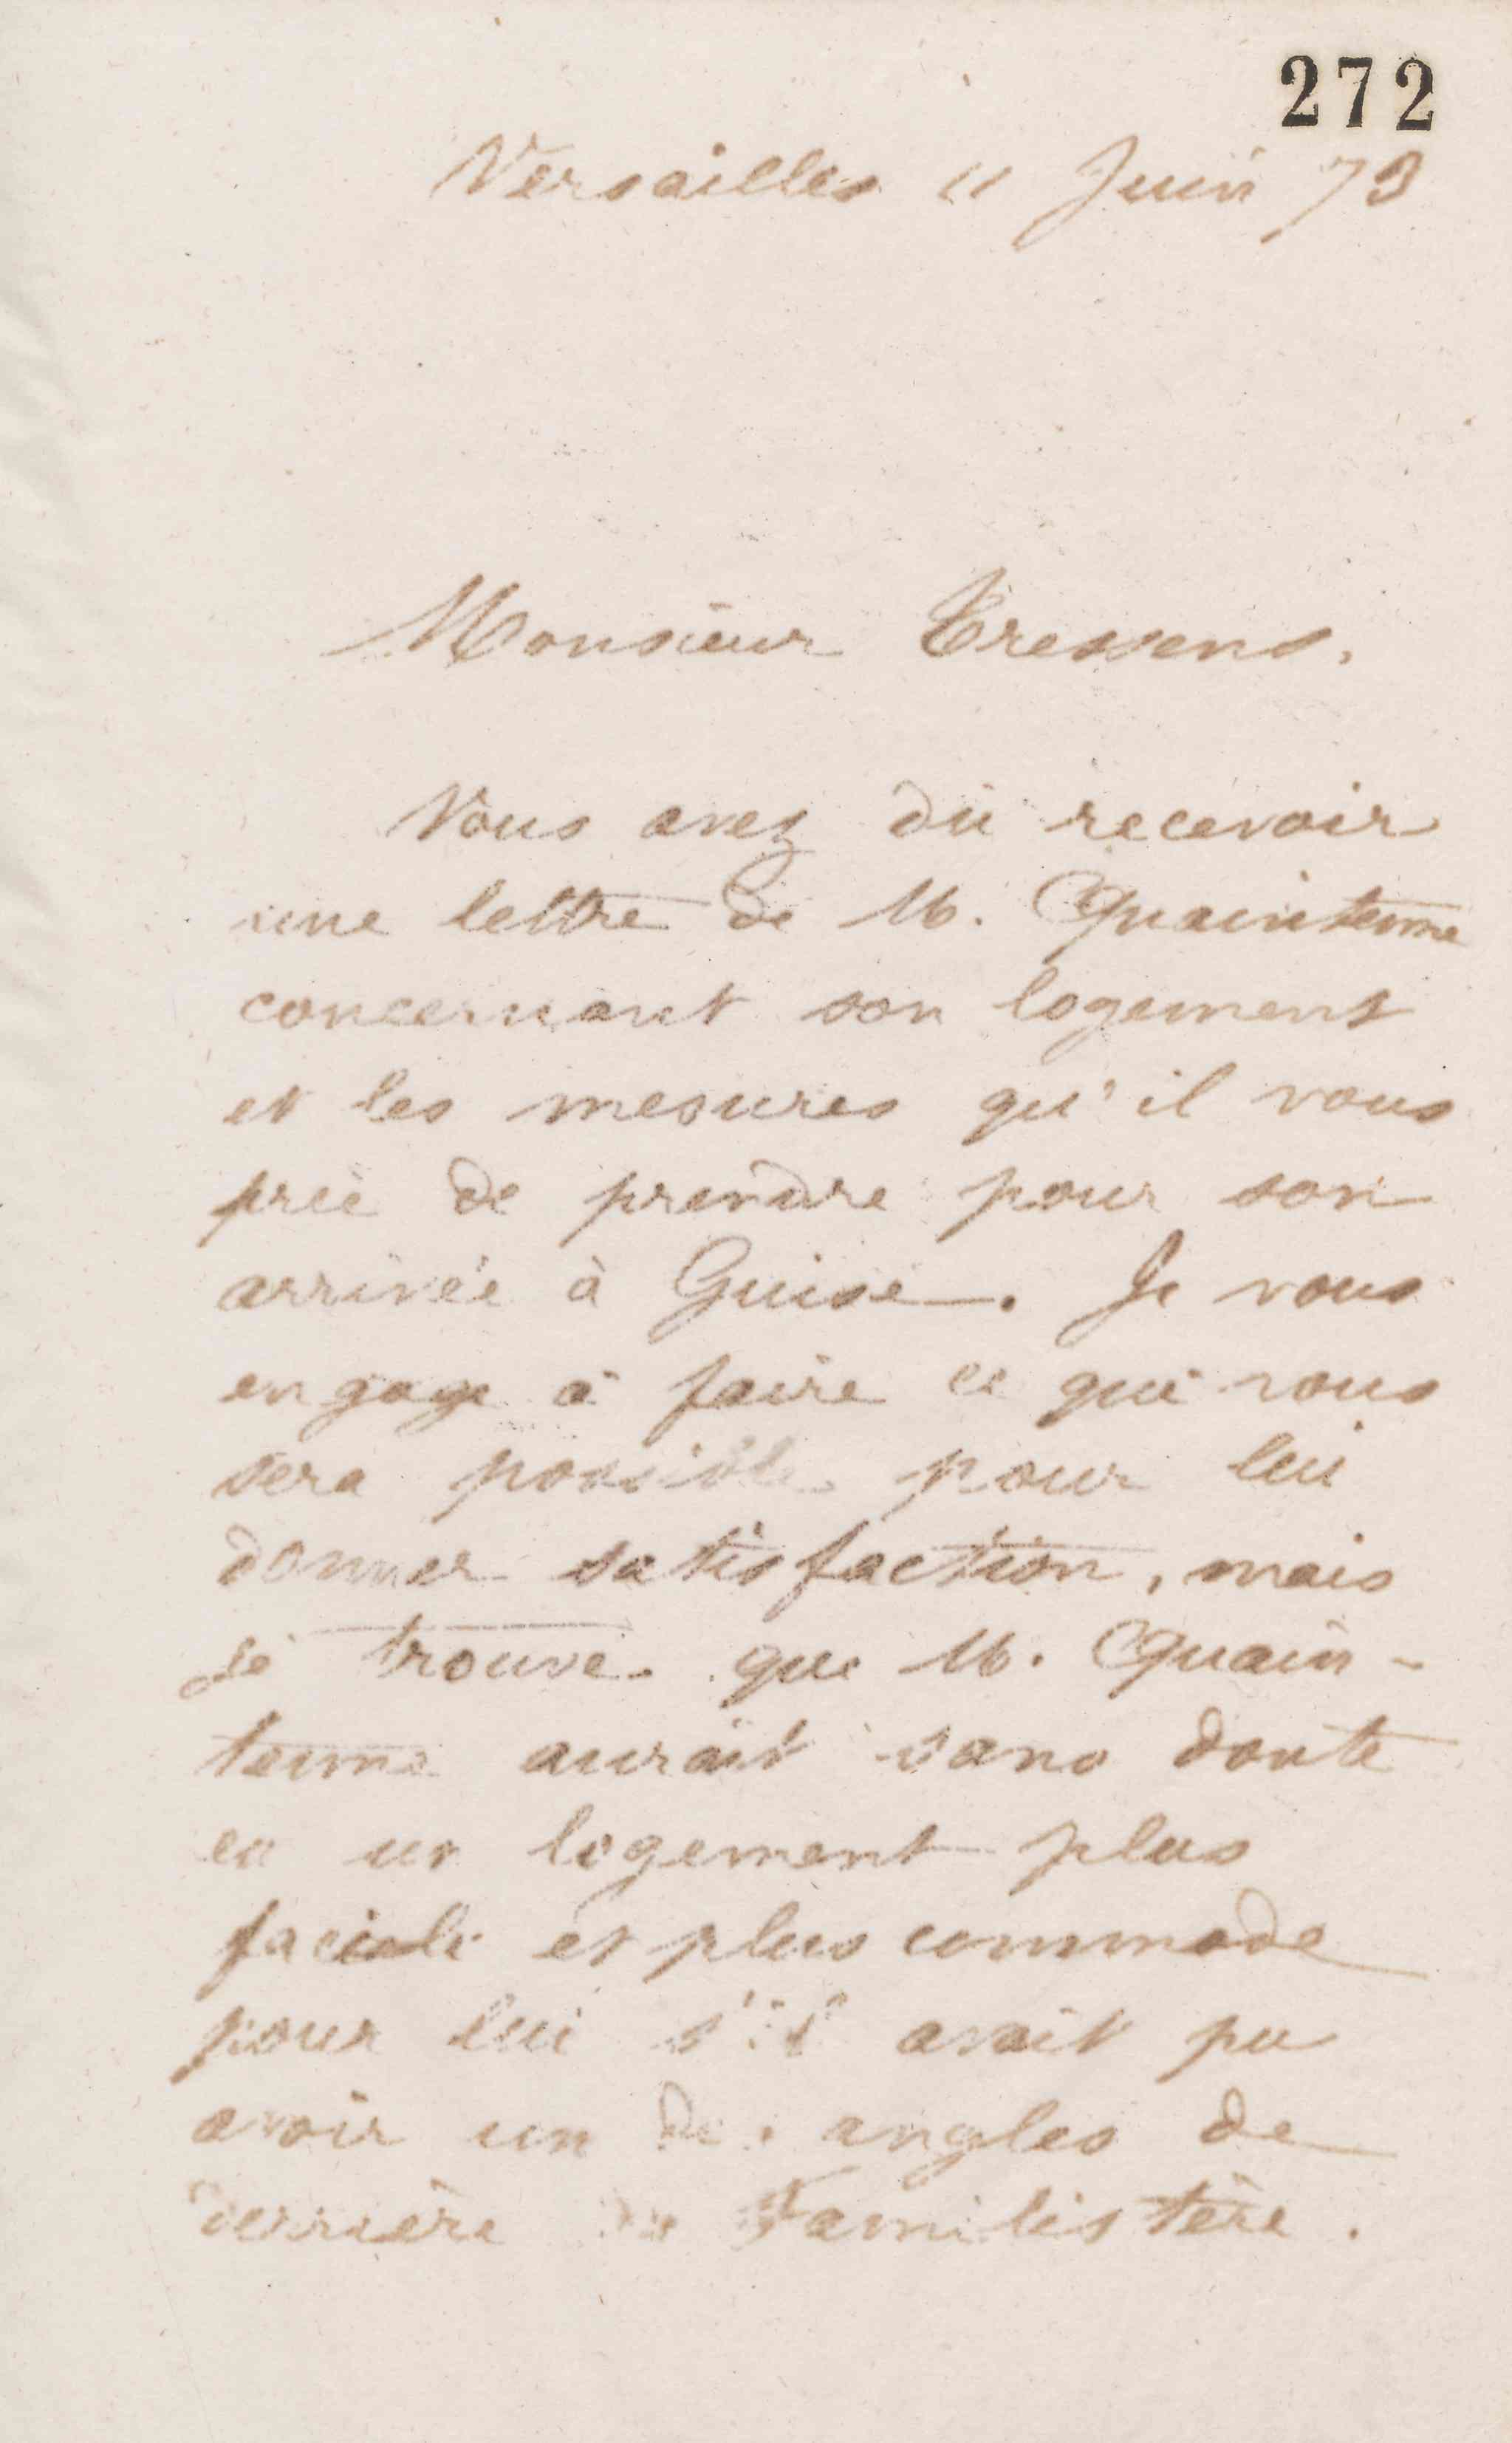 272
Versailles 11 Juin 73
Monsieur Tressens,
Vous avez dû recevoir
une lettre de M. Quaintenne
concernant son logement
et les mesures qu'il vous
prie de prendre pour son
arrivée à Guise. Je vous
engage à faire ce qui vous
sera possible pour lui
donner satisfaction, mais
je trouve que M. Quain-
tenne aurait sans doute
eu un logement plus
facile et plus commode
pour lui s'il avait pu
avoir un des angles de
derrière du Familistère.